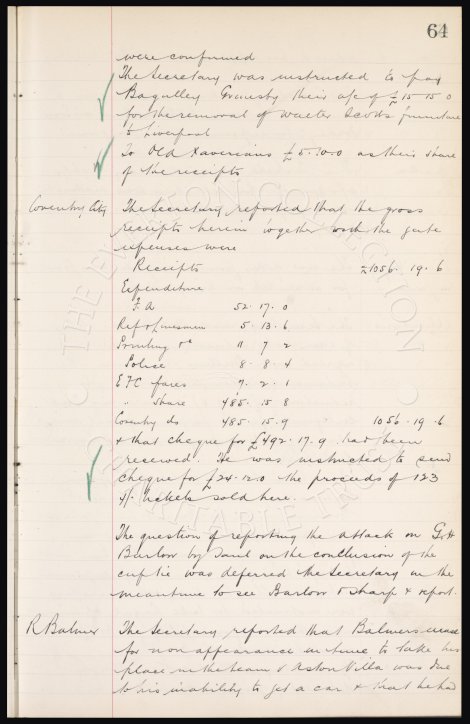 64
were confirmed
The Secretary was instructed to pay
Bagulley Grimsby their a/c of £15.15.0
for the removal of Walter Scotts furniture
to Liverpool
To Old Xaverians £5.10.0 as their share
of the receipts
Coventry City The Secretary reported that the gross
receipts herein together with the gate
expenses were
Receipts £1056.19.6
Expenditure
F A 52.17.0
Ref & Linesmen 5.13.6
Printing &c 11.7.2
Police 8.8.4
EFC fares 7.2.1
" Share 485.15.8
Coventry do 485.15.9 1056.19.6
& that cheque for £492.17.9 had been
received. He was instructed to send
cheque for £24.12.0 the proceeds of 123
4/- tickets sold here.
The question of reporting the attack on G H
Barlow by on the conclusion of the
cup tie was deferred the Secretary in the
meantime to see Barlow & Sharp & report.
R Balmer The Secretary reported that Balmers excuse
for non appearance in time to take his
place in the team v Aston Villa was due
to his inability to get a car & that he had
THE EVERTON COLLECTION
CHARITABLE TRUST